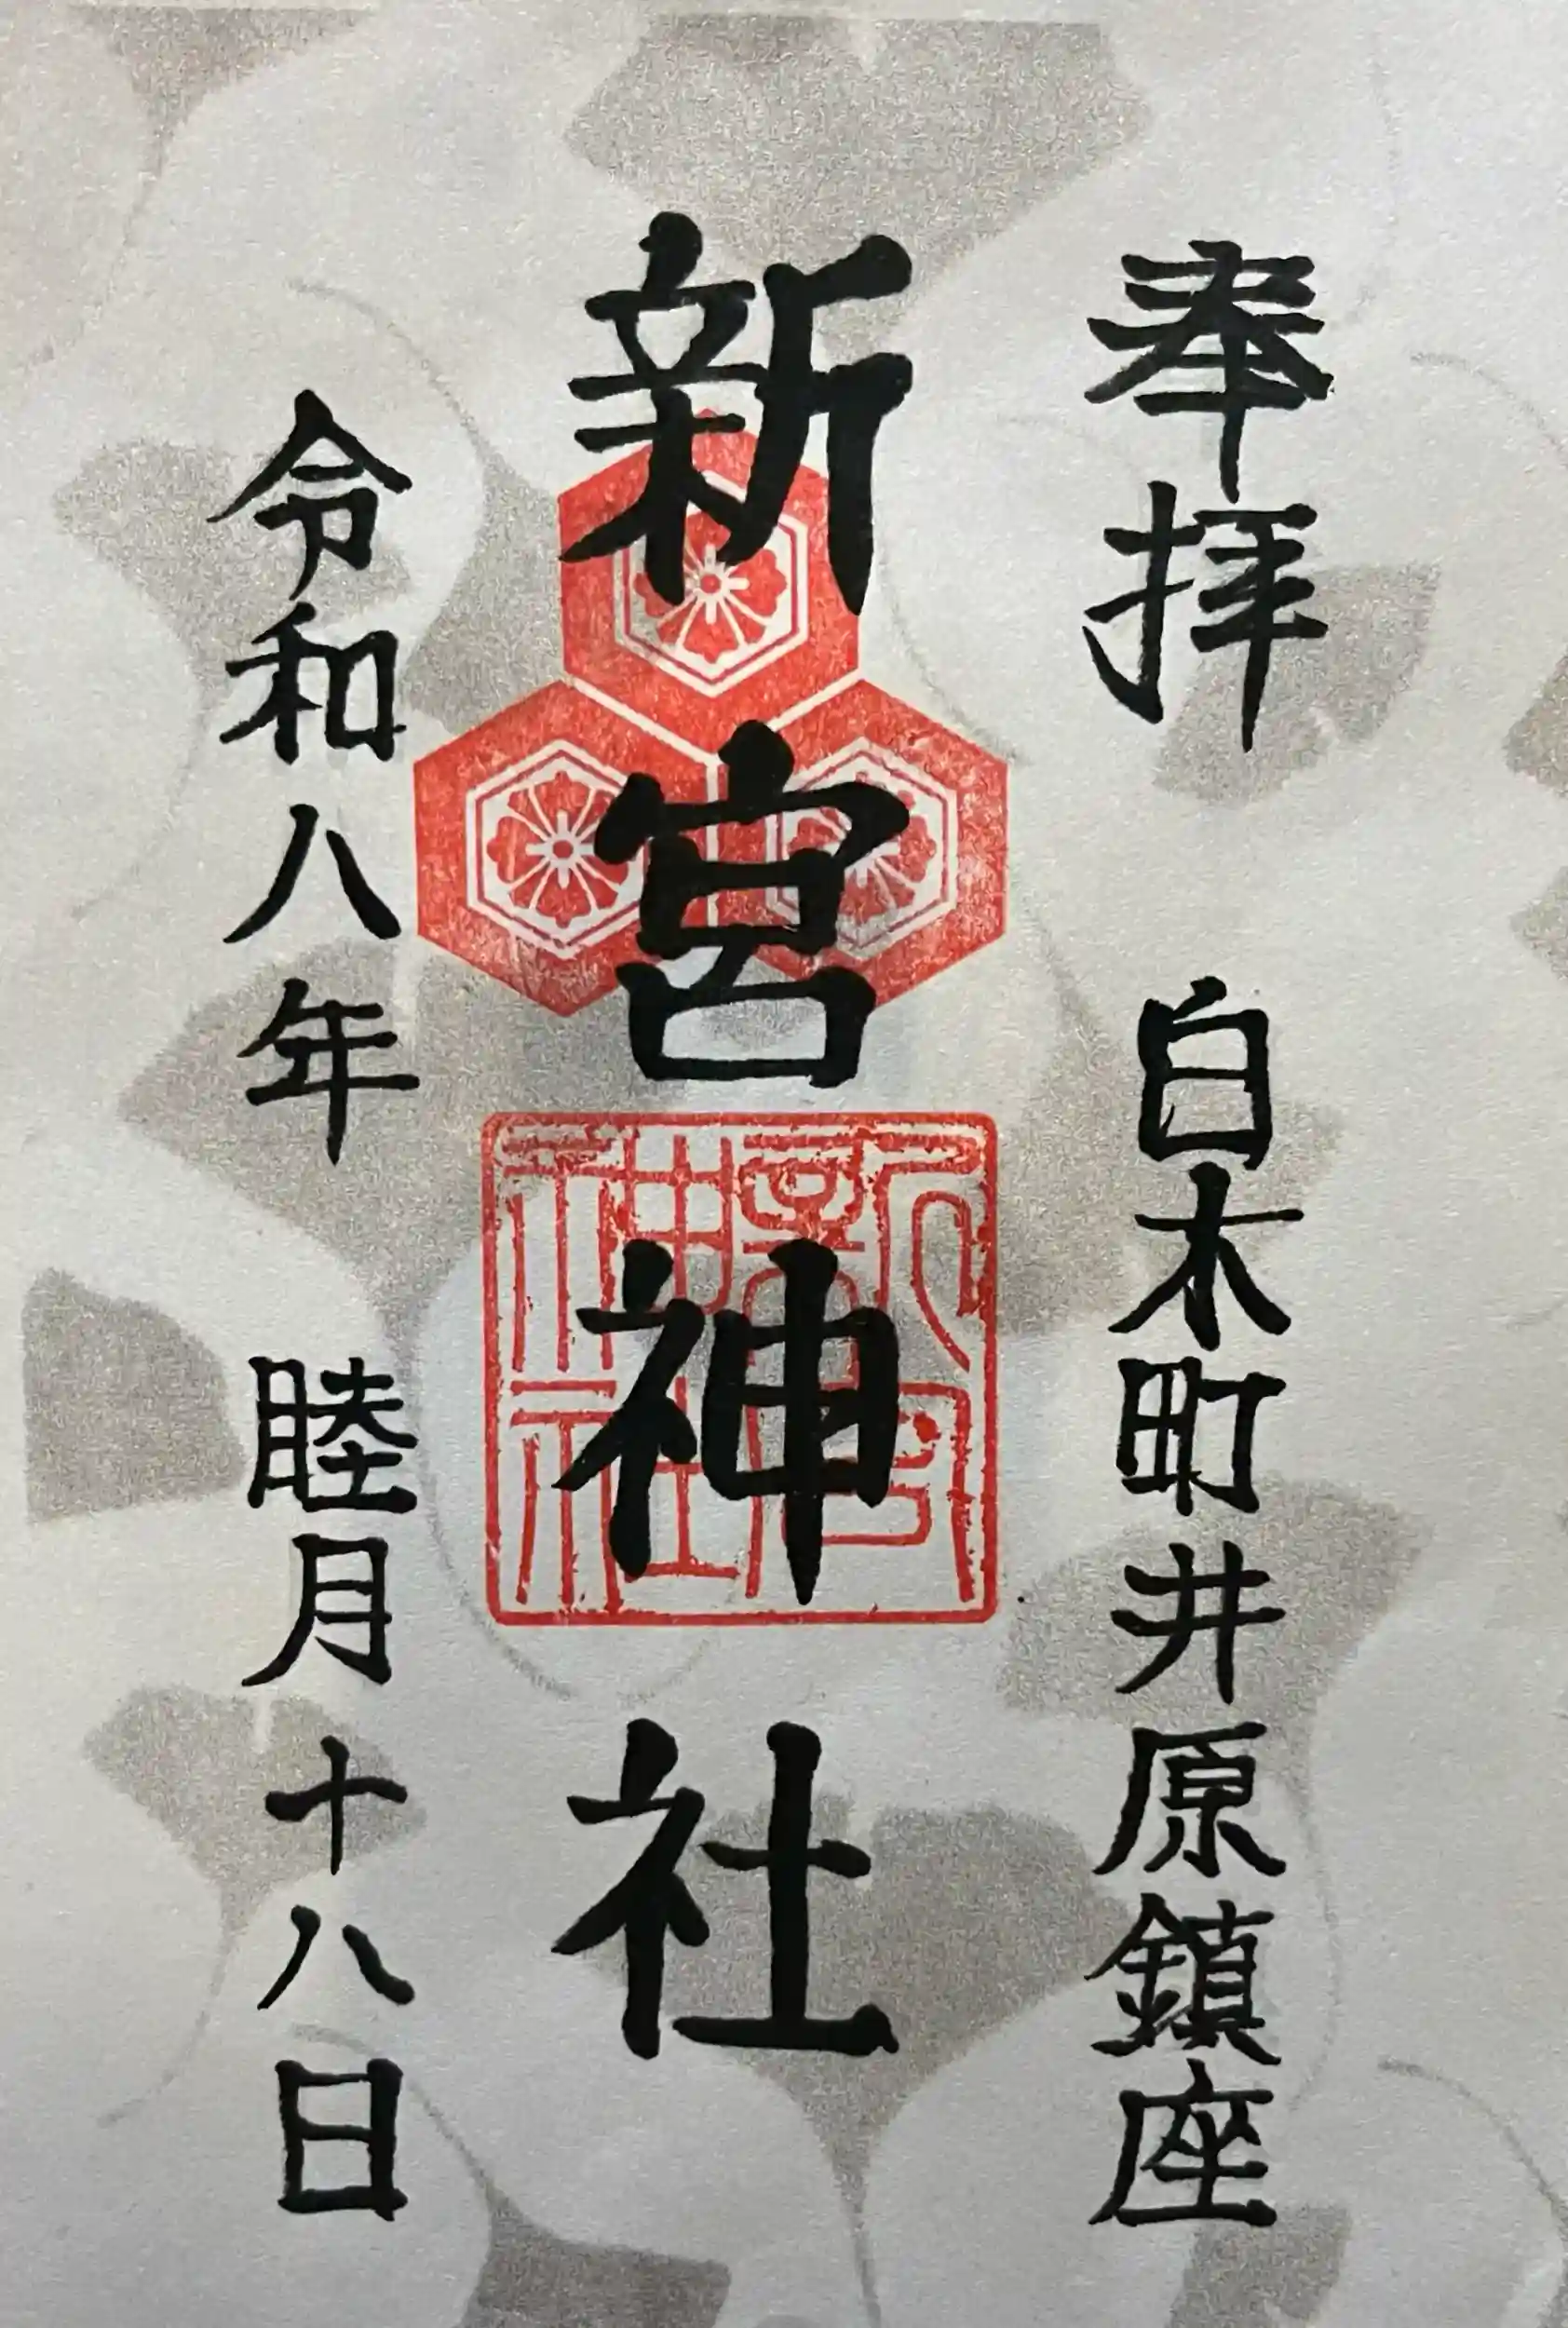 奉拝 白木町井原鎮座
新宮神社
令和八年 睦月十八日
新宮神社